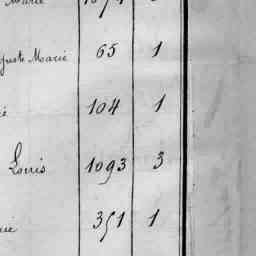 Marie
guste Marie 65 1
104 1
Louis 1093 3
351 1